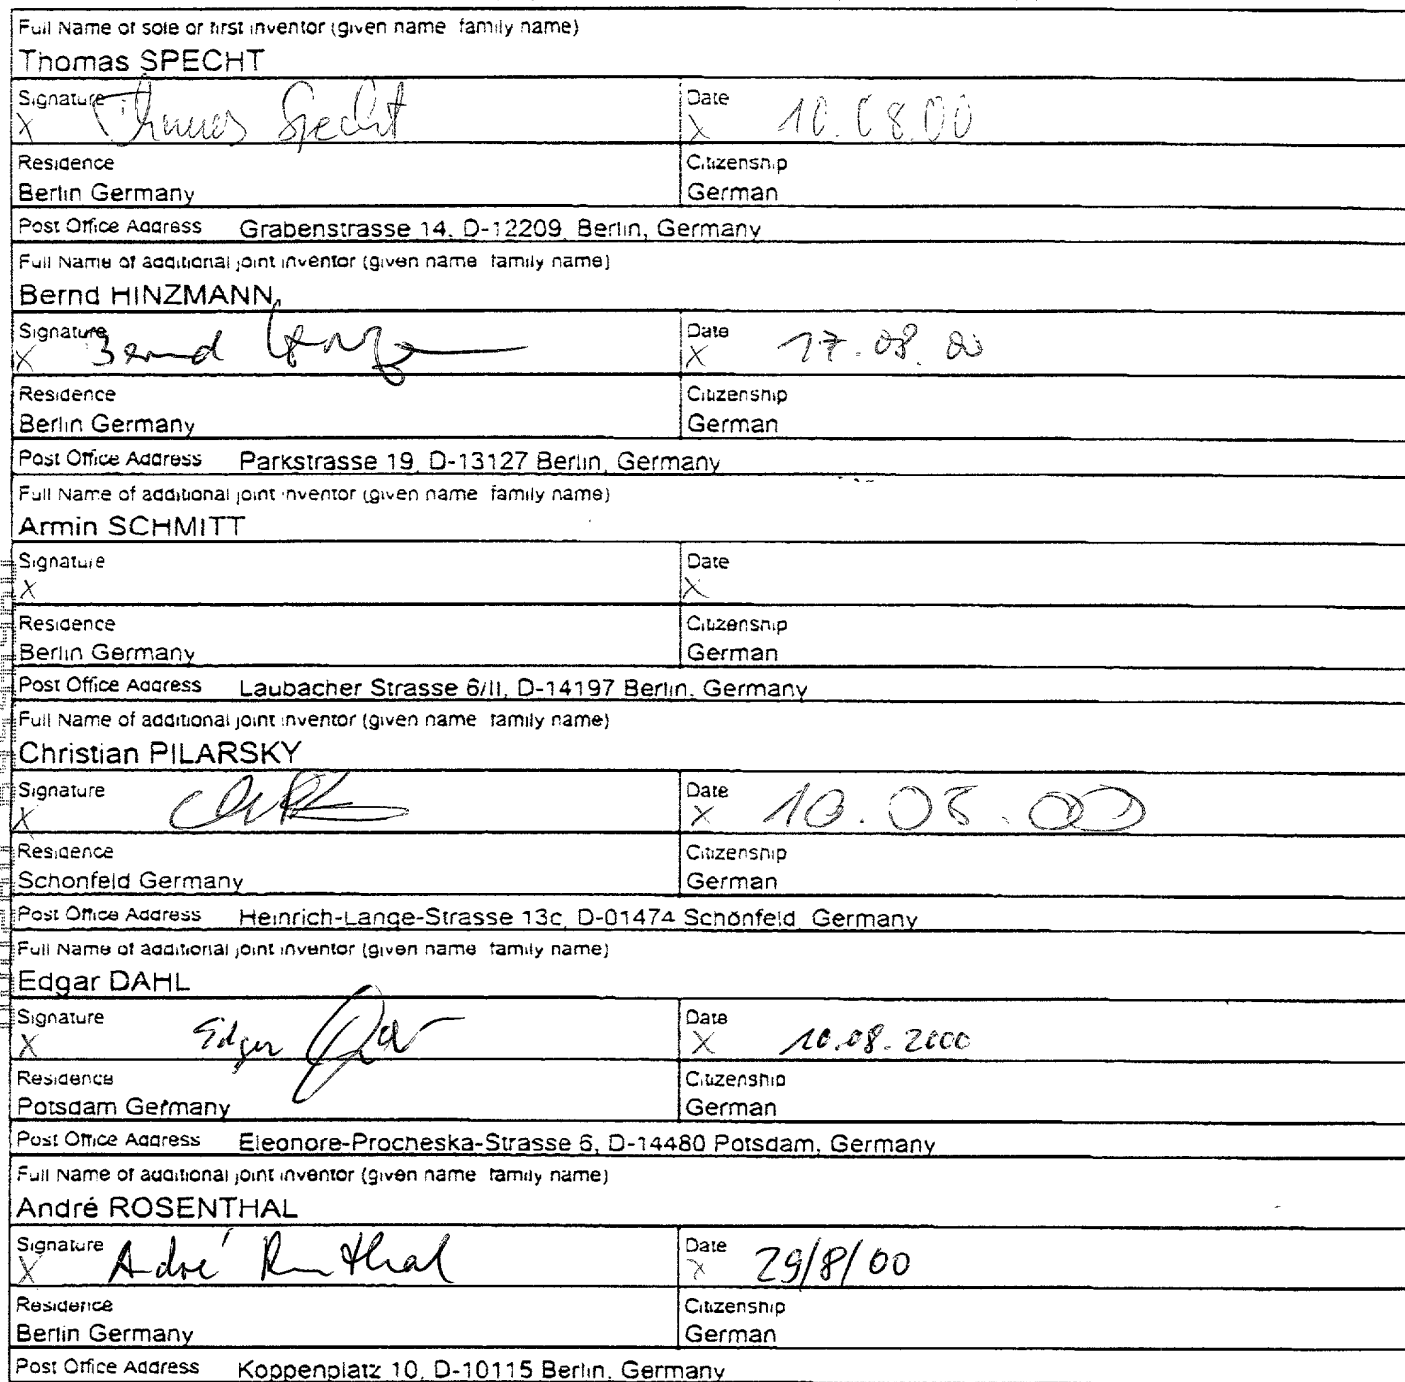 Full Name of sole or first inventor (given name family name)
Thomas SPECHT
Signature Date
X Thomas Specht X 10.08.00
Residence Citizenship
Berlin Germany German
Post Office Address Grabenstrasse 14, D-12209 Berlin, Germany
Full Name of additional joint inventor (given name family name)
Bernd HINZMANN
Signature Date
X Bernd X 17.08.00
Residence Citizenship
Berlin Germany German
Post Office Address Parkstrasse 19, D-13127 Berlin, Germany
Full Name of additional joint inventor (given name family name)
Armin SCHMITT
Signature Date
X X
Residence Citizenship
Berlin Germany German
Post Office Address Laubacher Strasse 6/II, D-14197 Berlin, Germany
Full Name of additional joint inventor (given name family name)
Christian PILARSKY
Signature Date
X X 10.08.00
Residence Citizenship
Schonfeld Germany German
Post Office Address Heinrich-Lange-Strasse 13c, D-01474 Schönfeld Germany
Full Name of additional joint inventor (given name family name)
Edgar DAHL
Signature Date
X Edgar X 10.08.2000
Residence Citizenship
Potsdam Germany German
Post Office Address Eleonore-Procheska-Strasse 6, D-14480 Potsdam, Germany
Full Name of additional joint inventor (given name family name)
André ROSENTHAL
Signature Date
X André Rosenthal X 29/8/00
Residence Citizenship
Berlin Germany German
Post Office Address Koppenplatz 10, D-10115 Berlin, Germany